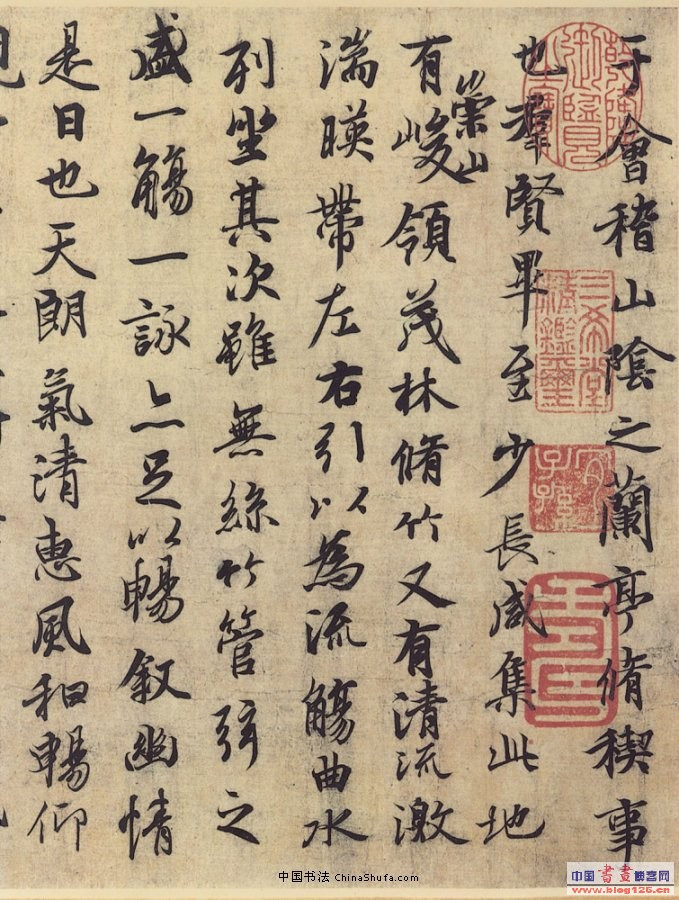 于會稽山陰之蘭亭脩禊事
也羣賢畢至少長咸集此地
有崇山峻領茂林脩竹又有清流激
湍暎帶左右引以為流觴曲水
列坐其次雖無絲竹管弦之
盛一觴一詠亦足以暢叙幽情
是日也天朗氣清惠風和暢仰
三希堂精鑑璽
宜子孫
中国书法 ChinaShufa.com
中国書畫博客网
www.blog126.cn